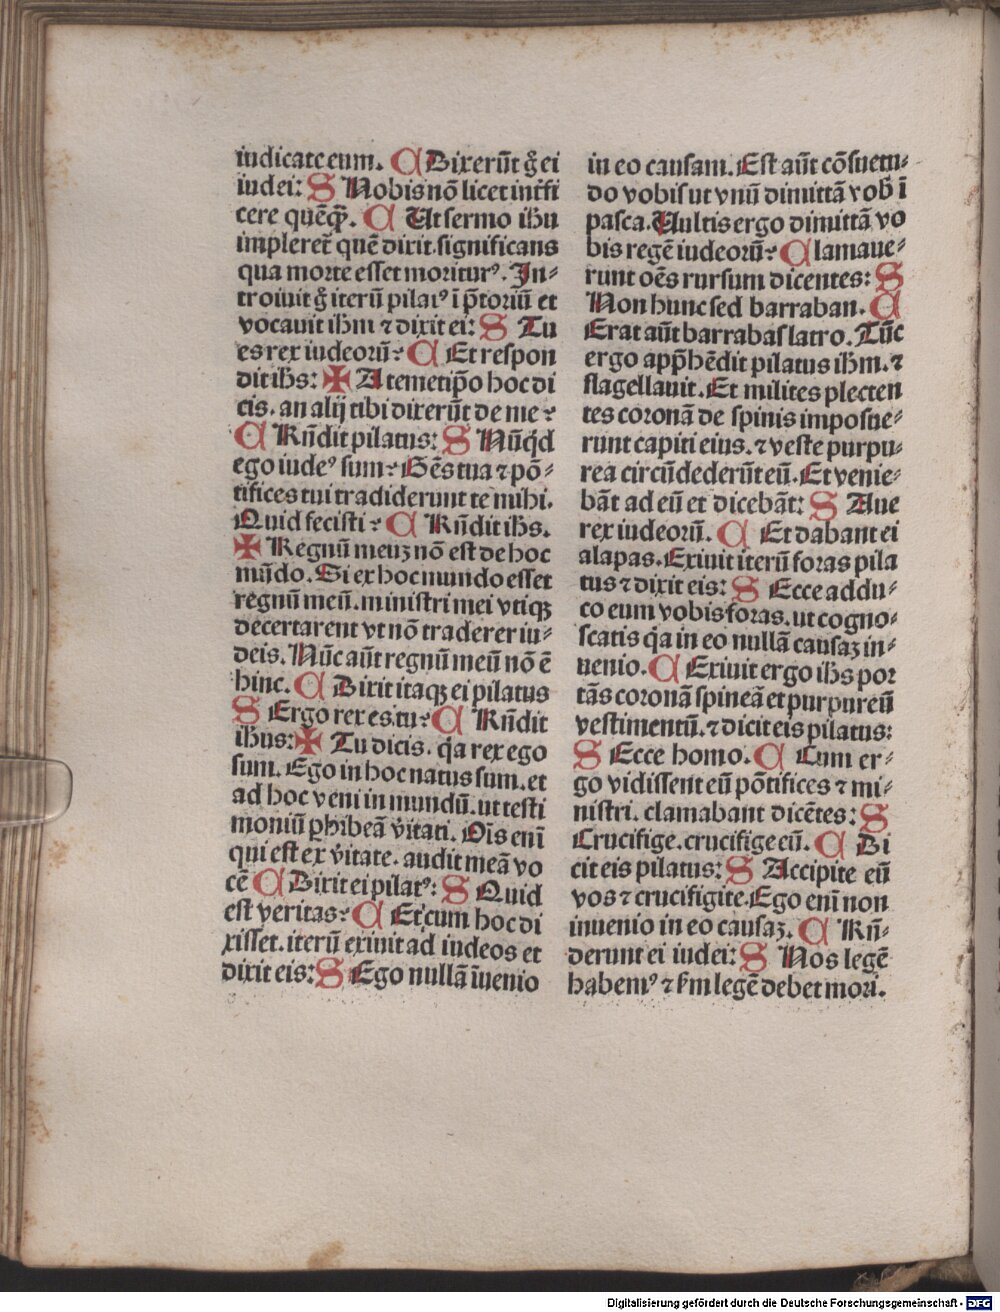 iudicate eum. C Dixerūt g̊ ei
iudei: S Nobis nō licet int̄fi
cere quēq̄ꝫ. C Ut sermo ihu
impleret̄ quē dixit. significans
qua morte esset moriturꝰ. In⸗
troiuit g̊ iterū pilatꝰ ī p̄toriū et
vocauit ihm ⁊ dixit ei: S Tu
es rex iudeorū? C Et respon
dit ihs: ✠ A temetip̄o hoc di
cis. an alij tibi dixerūt de me?
C Rn̄dit pilatus: S Nūqd
ego iudeꝰ sum? Gēs tua ⁊ pō⸗
tifices tui tradiderunt te mihi.
Quid fecisti? C Rn̄dit ihs.
✠ Regnū meuꝫ nō est de hoc
mūdo. Si ex hoc mundo esset
regnū meū. ministri mei vtiqꝫ
decertarent vt nō traderer iu⸗
deis. Nūc aūt regnū meū nō ē
hinc. C Dixit itaqꝫ ei pilatus
S Ergo rex es tu? C Rn̄dit
ihus: ✠ Tu dicis. q̄a rex ego
sum. Ego in hoc natus sum. et
ad hoc veni in mundū. ut testi
moniū ꝑhibeā v̄itati. Oīs enī
qui est ex v̄itate. audit meā vo
cē C Dixit ei pilatꝰ: S Quid
est veritas? C Et cum hoc di
xisset. iterū exiuit ad iudeos et
dixit eis: S Ego nullā īuenio
in eo causam. Est aūt cōsuetu⸗
do vobis ut vnū dimittā vob̄ ī
pasca. Vultis ergo dimittā vo
bis regē iudeorū? Clamaue⸗
runt oēs rursum dicentes: S
Non hunc sed barraban. C
Erat aūt barrabas latro. Tūc
ergo app̄hēdit pilatus ihm. ⁊
flagellauit. Et milites plecten
tes coronā de spinis imposue⸗
runt capiti eius. ⁊ veste purpu⸗
rea circūdederūt eū. Et venie⸗
bāt ad eū et dicebāt: S Aue
rex iudeorū. C Et dabant ei
alapas. Exiuit iterū foras pila
tus ⁊ dixit eis: S Ecce addu⸗
co eum vobis foras. ut cogno⸗
scatis q̄a in eo nullā causaꝫ in⸗
uenio. C Exiuit ergo ihs por
tās coronā spineā et purpureū
vestimentū. ⁊ dicit eis pilatus:
S Ecce homo. C Cum er⸗
go vidissent eū pōtifices ⁊ mi⸗
nistri. clamabant dicētes: S
Crucifige. crucifige eū. C Di
cit eis pilatus: S Accipite eū
vos ⁊ crucifigite. Ego enī non
inuenio in eo causaꝫ. C Rn̄⸗
derunt ei iudei: S Nos legē
habemꝰ ⁊ ẜm legē debet mori.
Digitalisierung gefördert durch die Deutsche Forschungsgemeinschaft - DFG